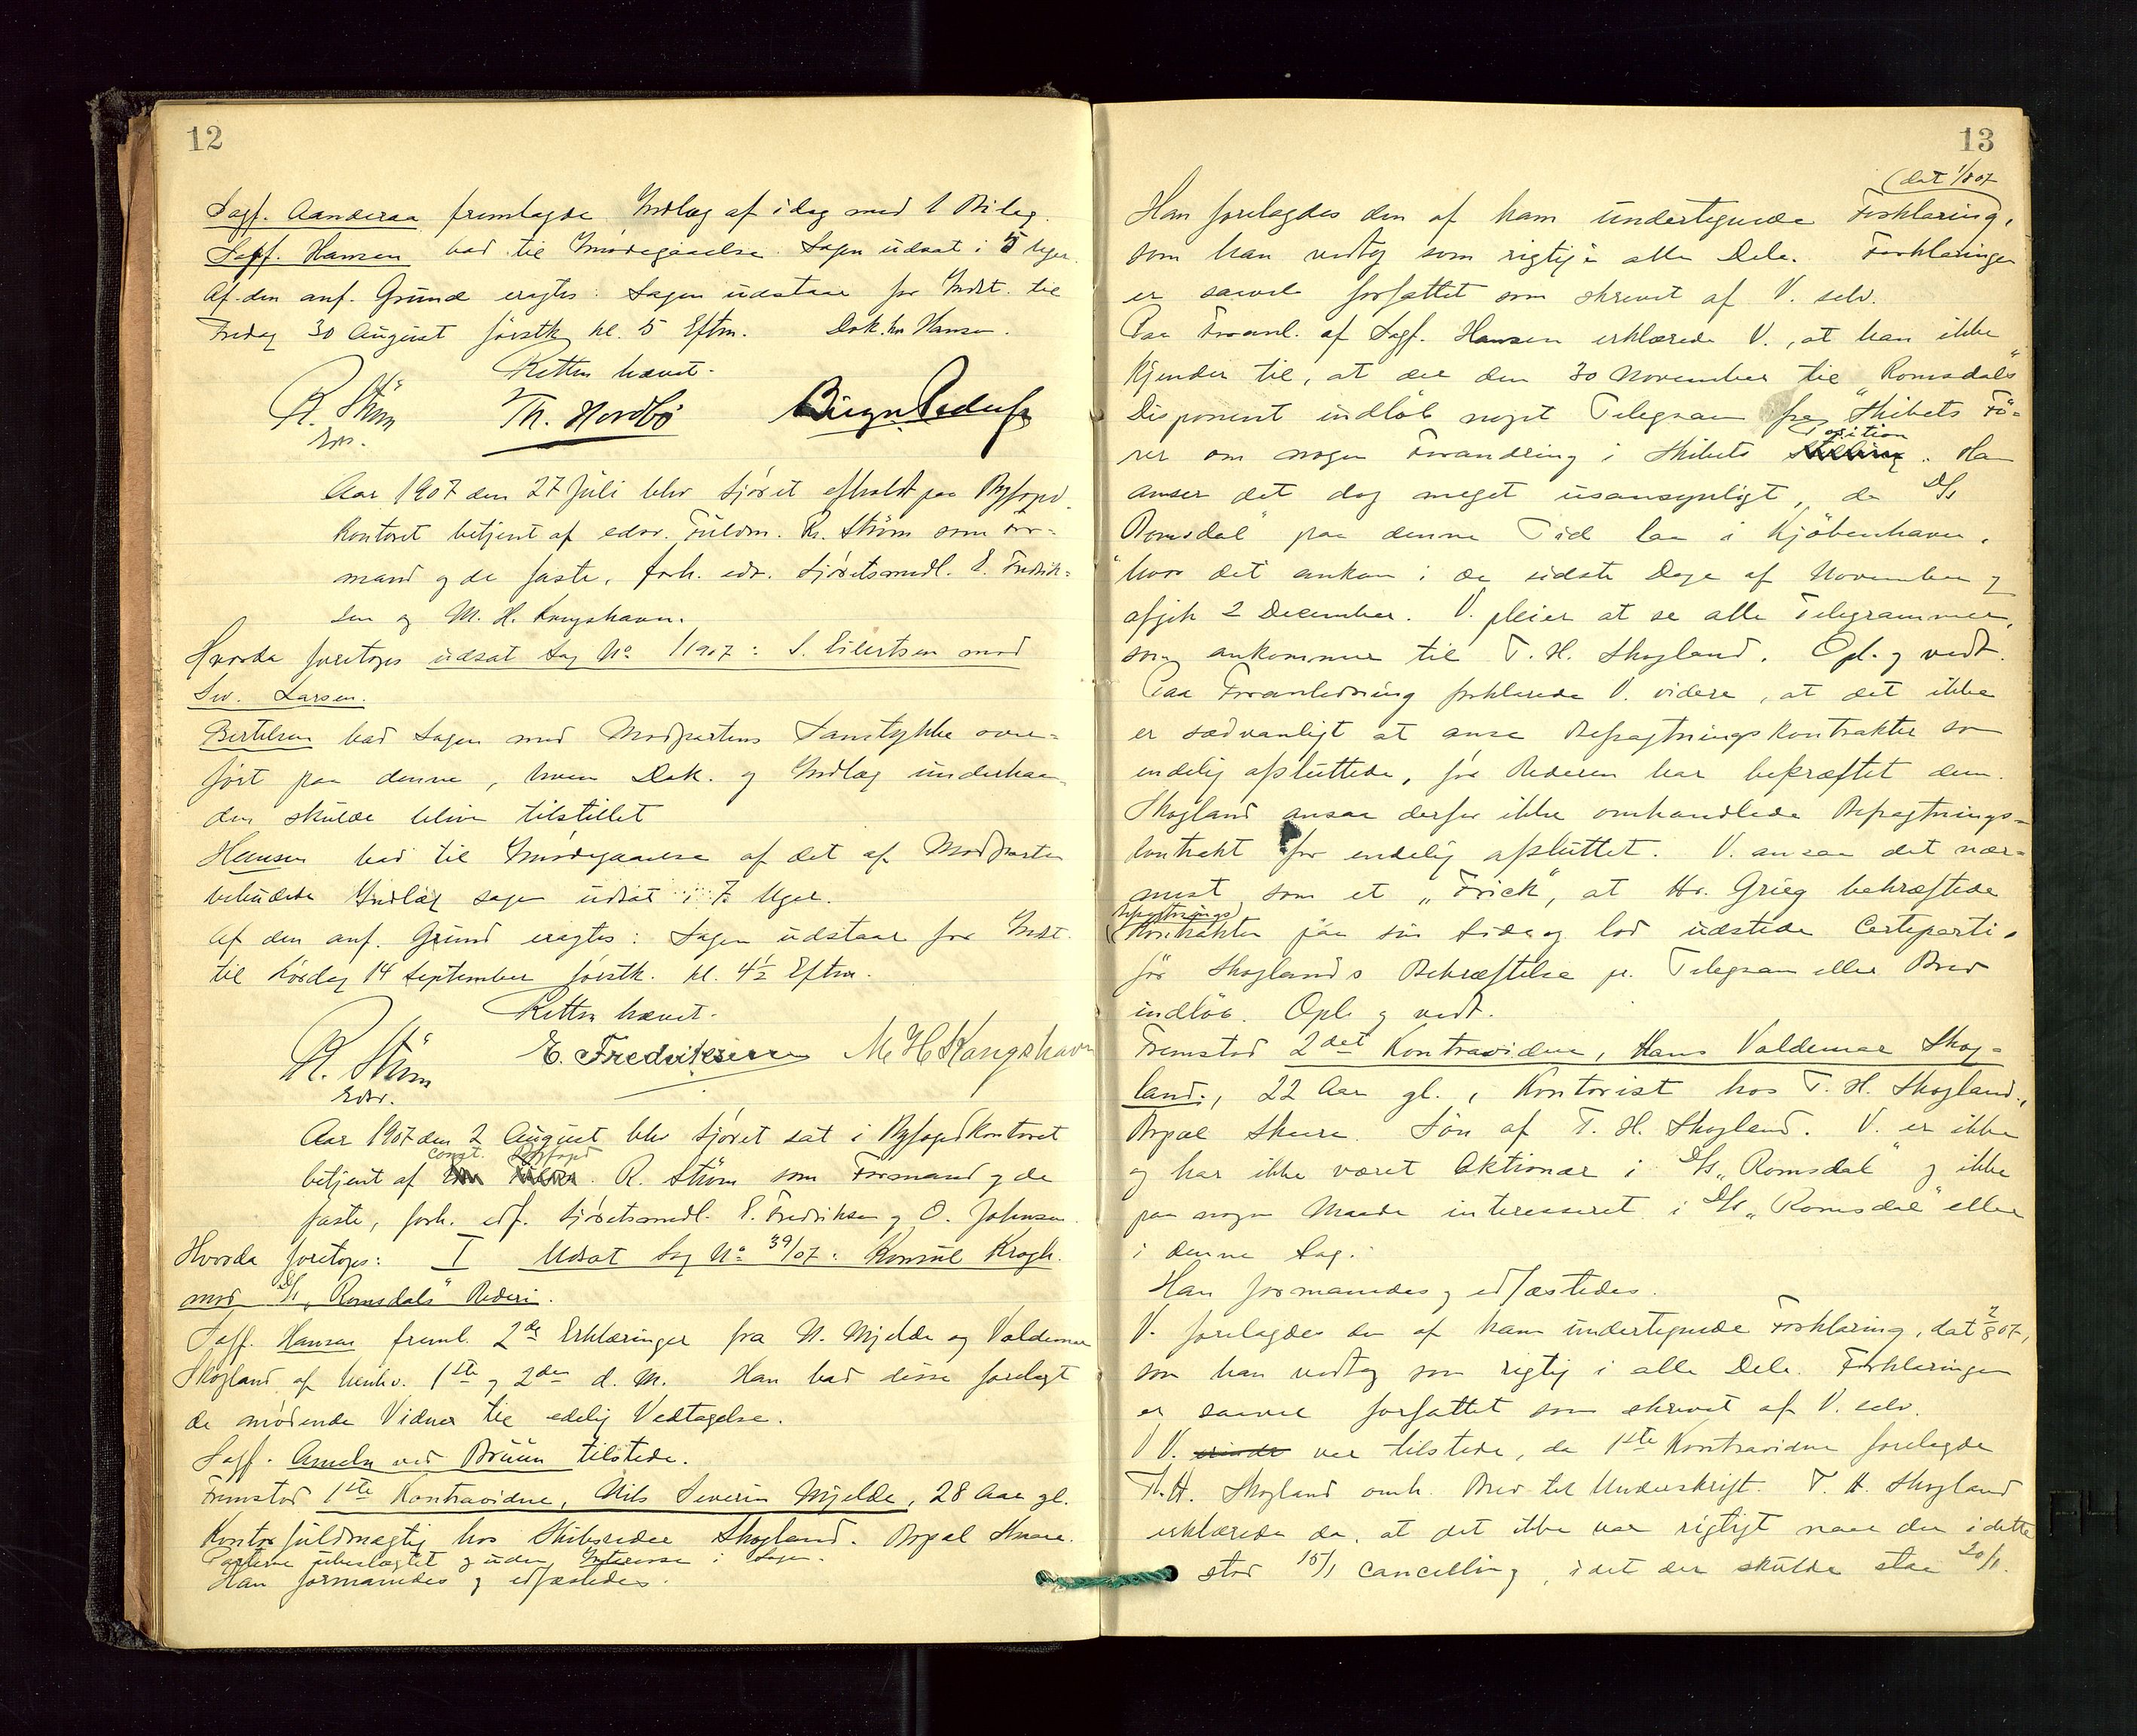 12
Sagf. Aanderaa fremlagde Indlæg af idag med 1 Bilag.
Sagf. Hansen bad til Imødegaaelse Sagen udsat i 5 Uger.
Af den anf. Grund eragtes: Sagen udstaar for Indst. til
Fredag 30 August førstk. kl. 5 Eftm. Dok. hr Hansen.
Retten hævet.
R. Strøm Th. Nordbø
Edsv.
Aar 1907 den 27 Juli blev Sjøret afholdt paa Byfogd.
kontoret betjent af edsv. Fuldm. R. Strøm som For-
mand og de faste, forh. edsv. Sjøretsmedl. E. Fredrik-
sen og M. H. Kongshavn.
Hvorda foretoges udsat Sag No 1/1907: S. Eilertsen mod
Sev. Larsen.
Bertelsen bad Sagen med Modpartens Samtykke over-
ført paa denne, hvem Dok. og Indlæg underhaan-
den skulde blive tilstillet
Hansen bad til Imødegaaelse af det af Modparten
bebudede Indlæg sagen udsat i 7 Uger.
Af den anf. Grund eragtes: Sagen udstaar for Indst.
til Lørdag 14 September førstk. kl. 4½ Eftm.
Retten hævet.
R. Strøm E. Fredriksen M H Kongshavn
Edsv.
Aar 1907 den 2 August blev Sjøret sat i Byfogedkontoret
const. Byfogd
betjent af R. Strøm som Formand og de
faste, forh. edf. Sjøretsmedl. E. Fredriksen og O. Johnsen.
Hvorda foretoges: I Udsat Sag No 39/07: Konsul Krogh
mod D/S „Romsdals" Rederi.
Sagf. Hansen freml. 2de Erklæringer fra N. Mjelde og Valdemar
Skogland af henhv. 1ste og 2den d. M. Han bad disse forelagt
de mødende Vidner til edelig Vedtagelse.
Sagf. Ameln ved Bruun tilstede.
Fremstod 1ste Kontravidne, Nils Severin Mjelde, 28 Aar gl.
Kontorfuldmægtig hos Skibsreder Skogland. Bopæl Skure.
Parterne ubeslægtet og uden Interesse i Sagen.
Han formanedes og edfæstedes.
13
(dat 1/8 07
Han forelagdes den af ham undertegnede Forklaring,
som han vedtog som rigtig i alle Dele. Forklaringen
er saavel forfattet som skrevet af V. selv.
Paa Foranl. af Sagf. Hansen erklærede V., at han ikke
kjender til, at der den 30 November til „Romsdals"
Disponent indløb noget Telegram fra Skibets Fø-
Position
rer om nogen Forandring i Skibets . Han
anser det dog meget usansynligt, da D/S
„Romsdal" paa denne Tid laa i Kjøbenhavn,
hvor det ankom i de sidste Dage af November og
afgik 2 December. V. pleier at se alle Telegrammer,
som ankommer til T. H. Skogland. Opl. og vedt.
Paa Foranledning forklarede V. videre, at det ikke
er sædvanligt at anse Befragtningskontrakter som
endelig afsluttede, før Rederen har bekræftet dem.
Skogland ansaa derfor ikke omhandlede Befragtnings-
kontrakt for endelig afsluttet. V. ansaa det nær-
mest som et „Trick", at Hr. Grieg bekræftede
Befragtnings
Kontrakten paa sin Side og lod udstede Certeparti,
før Skoglands Bekræftelse pr. Telegram eller Brev
indløb. Opl. og vedt.
Fremstod 2det Kontravidne, Hans Valdemar Skog-
land., 22 Aar gl., Kontorist hos T. H. Skogland.,
Bopæl Skure. Søn af T. H. Skogland. V. er ikke
og har ikke været Aktionær i D/S „Romsdal" og ikke
paa nogen Maade interesseret i D/S „Romsdal" eller
i denne Sag.
Han formanedes og edfæstedes.
V. forelagdes den af ham undertegnede Forklaring, dat 2/8 07,
som han vedtog som rigtig i alle Dele. Forklaringen
er saavel forfattet som skrevet af V. selv.
V. var tilstede, da 1ste Kontravidne forelagde
T. H. Skogland omh. Brev til Underskrift. T. H. Skogland
erklærede da, at det ikke var rigtigt naar der i dette
stod 15/1 cancelling, idet der skulde staa 20/1.